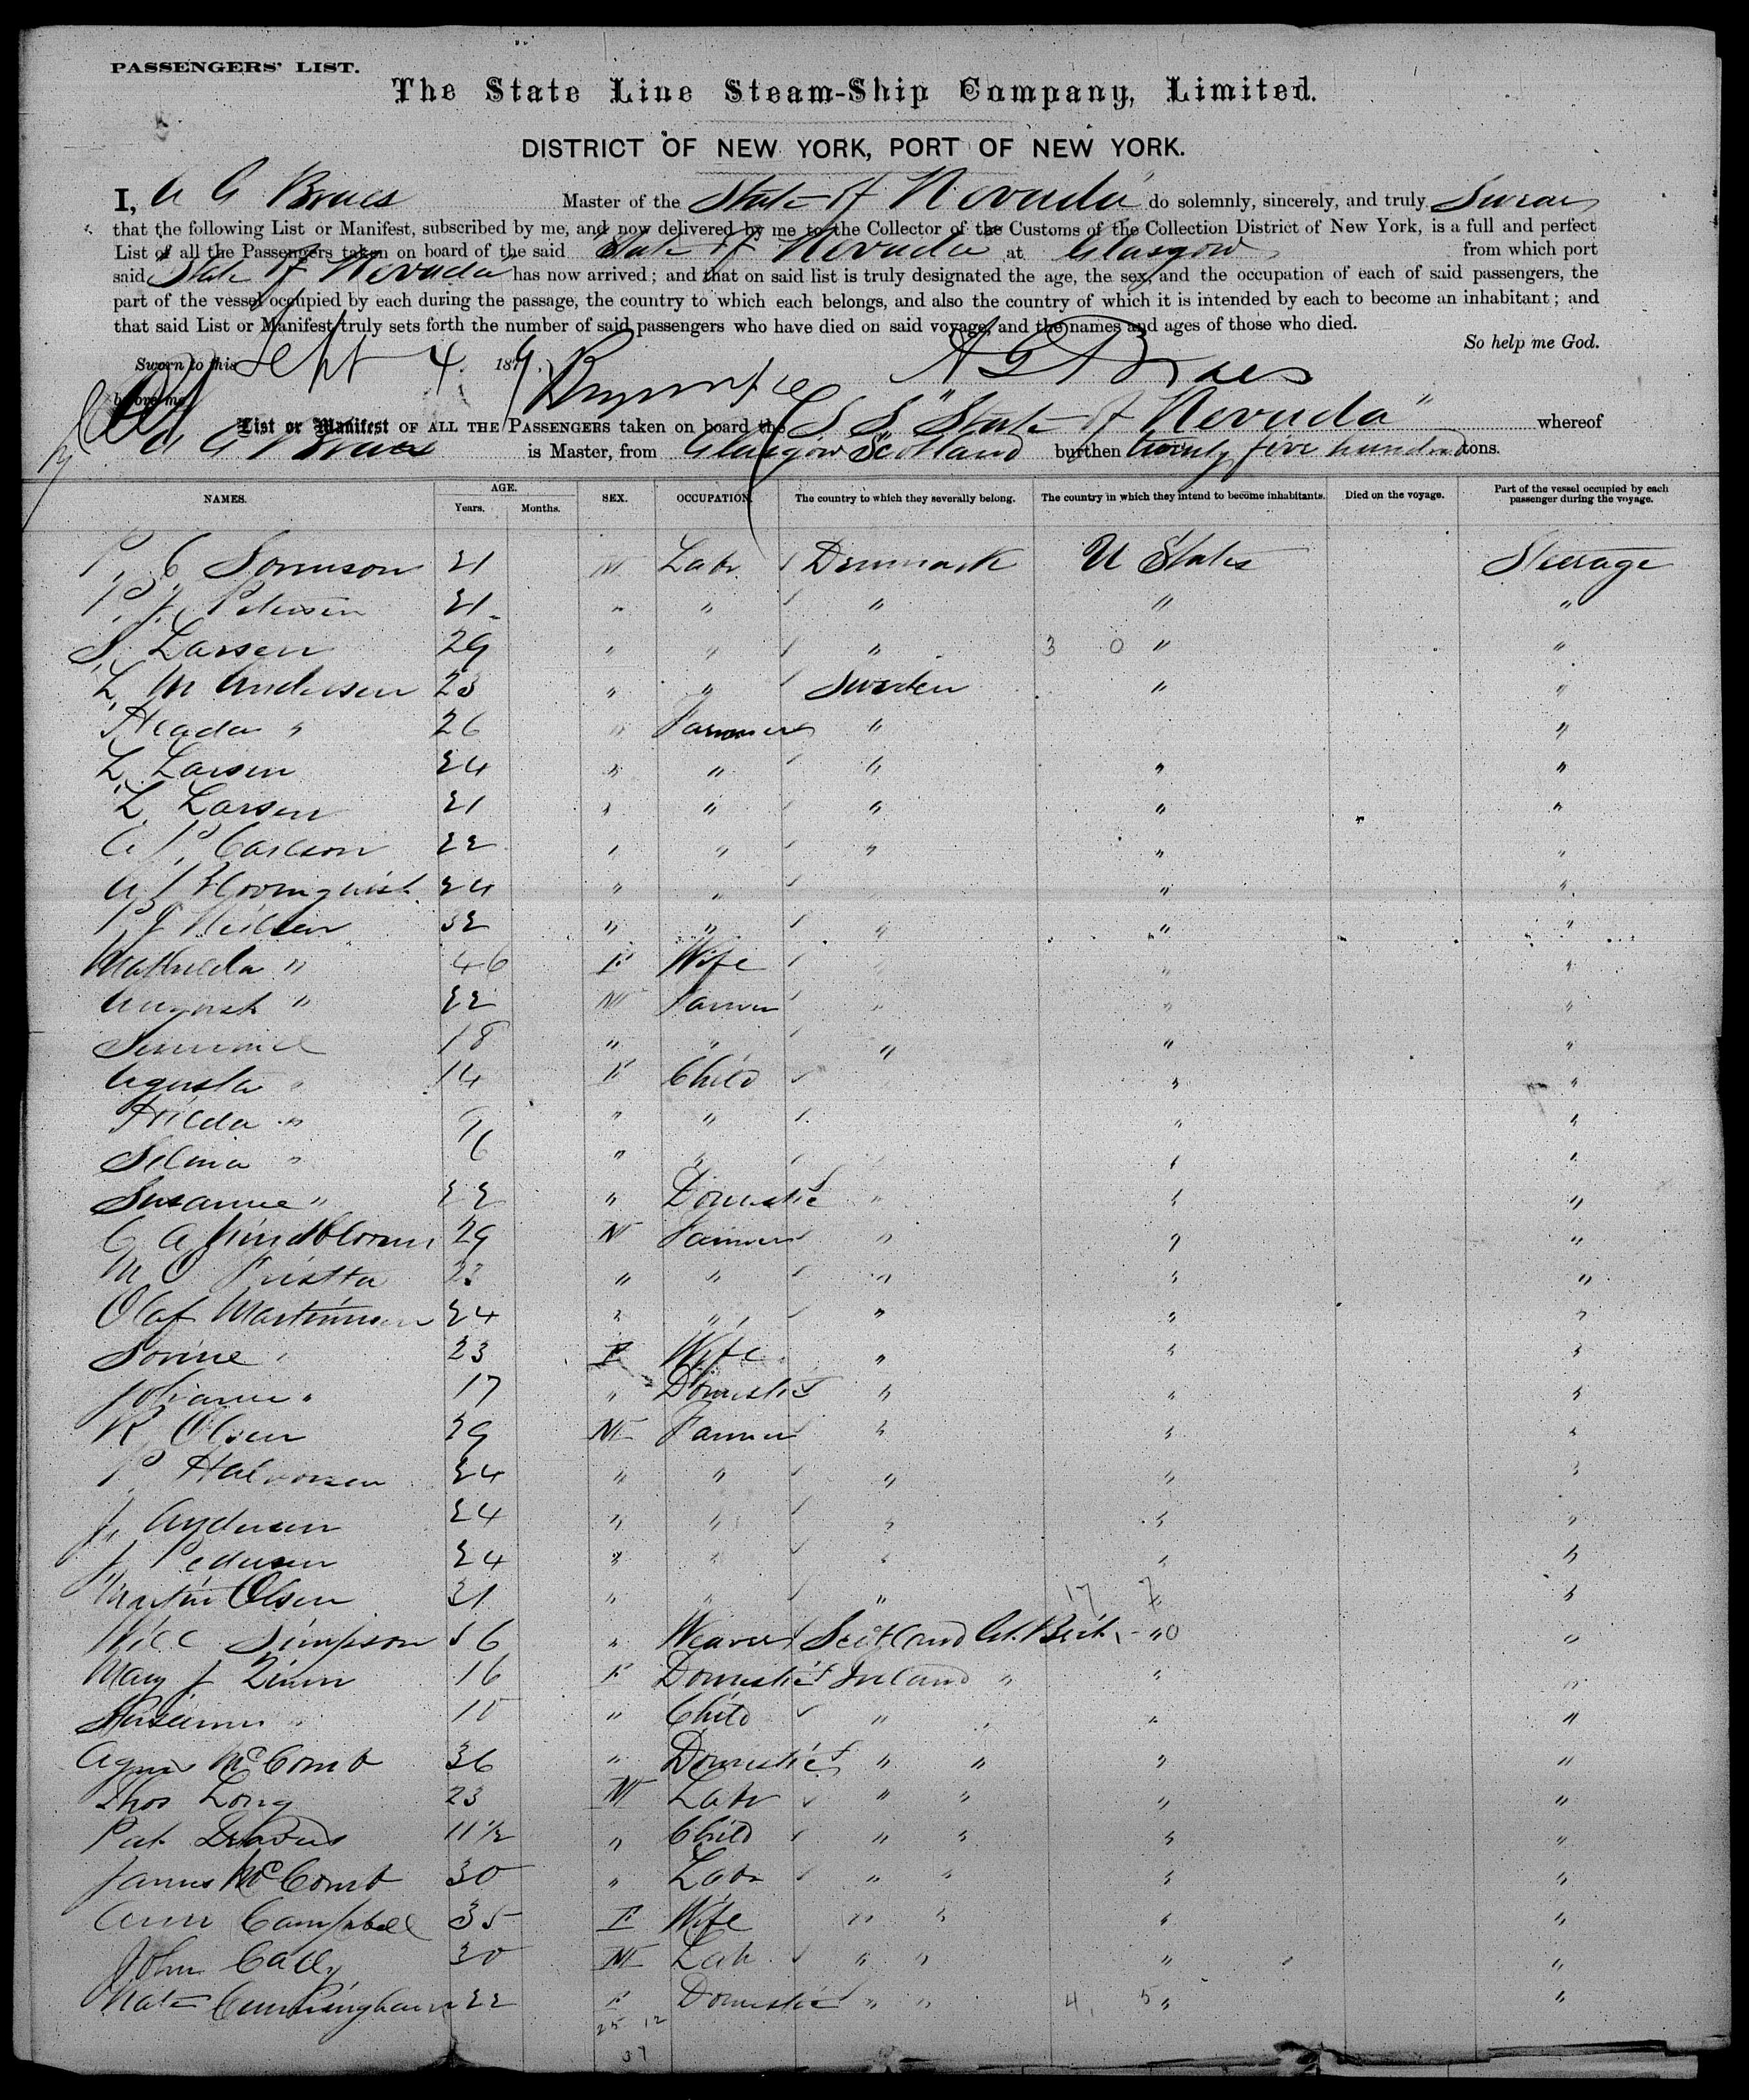 PASSENGERS' LIST.
The State Line Steam-Ship Company, Limited.
DISTRICT OF NEW YORK, PORT OF NEW YORK.
I, A G Braes Master of the State of Nevada do solemnly, sincerely, and truly Swear
that the following List or Manifest, subscribed by me, and now delivered by me to the Collector of the Customs of the Collection District of New York, is a full and perfect
List of all the Passengers taken on board of the said State of Nevada at Glasgow from which port
said State of Nevada has now arrived; and that on said list is truly designated the age, the sex, and the occupation of each of said passengers, the
part of the vessel occupied by each during the passage, the country to which each belongs, and also the country of which it is intended by each to become an inhabitant; and
that said List or Manifest truly sets forth the number of said passengers who have died on said voyage, and the names and ages of those who died.
So help me God.
Sworn to this Sept 4 1879 A G Braes
before me
List or Manifest OF ALL THE PASSENGERS taken on board the S S "State of Nevada" whereof
A G Braes is Master, from Glasgow Scotland burthen twenty five hundred tons.
NAMES. AGE. Years. Months. SEX. OCCUPATION. The country to which they severally belong. The country in which they intend to become inhabitants. Died on the voyage. Part of the vessel occupied by each passenger during the voyage.
P. C Sorenson 21 M Labr Denmark U States Steerage
P. J. Petersen 21 " " " " "
S. Larsen 29 " " " 3 0 " "
L. M Andersen 23 " " Sweden " "
" 26 " Farmer " "
L. Larsen 24 " " " " "
L. Larsen 21 " " " " "
C P. Carlson 22 " " " " "
A J 24 " " " " "
P J Neilsen 32 " " " " "
Mathilda " 46 F Wife " " "
August " 22 M Farmer " " "
18 " " " " "
Agusta " 14 F Child " "
Hilda " 9 " " " "
Selma " 6 " " " "
Susanne " 22 " Domestic " " "
C A Lindbloom 29 M Farmer " " "
M 23 " " " " "
Olaf Martinnsen 24 " " " " "
Sorine " 23 F Wife " " "
Johanne " 17 " Domestic " " "
R Olsen 29 M Farmer " " "
P. Halvorsen 24 " " " " "
J. Andersen 24 " " " " "
J. Pedersen 24 " " " " "
Martin Olsen 31 " " " 17 7 " "
Will Simpson 56 " Weaver Scotland Gt. Brit. " 0 "
Mary J 16 F Domestic Ireland " " "
" 10 " Child " " " "
Agnes McComb 36 " Domestic " " " "
Thos Long 23 M Labr " " " "
Pat 11 1/2 " Child " " " "
James McComb 30 " Labr " " " "
Ann Campbell 35 F Wife " " " "
John Cally 30 M Lab " " " "
Kate Cunningham 22 F Domestic " " 4, 5 " "
25 12
37